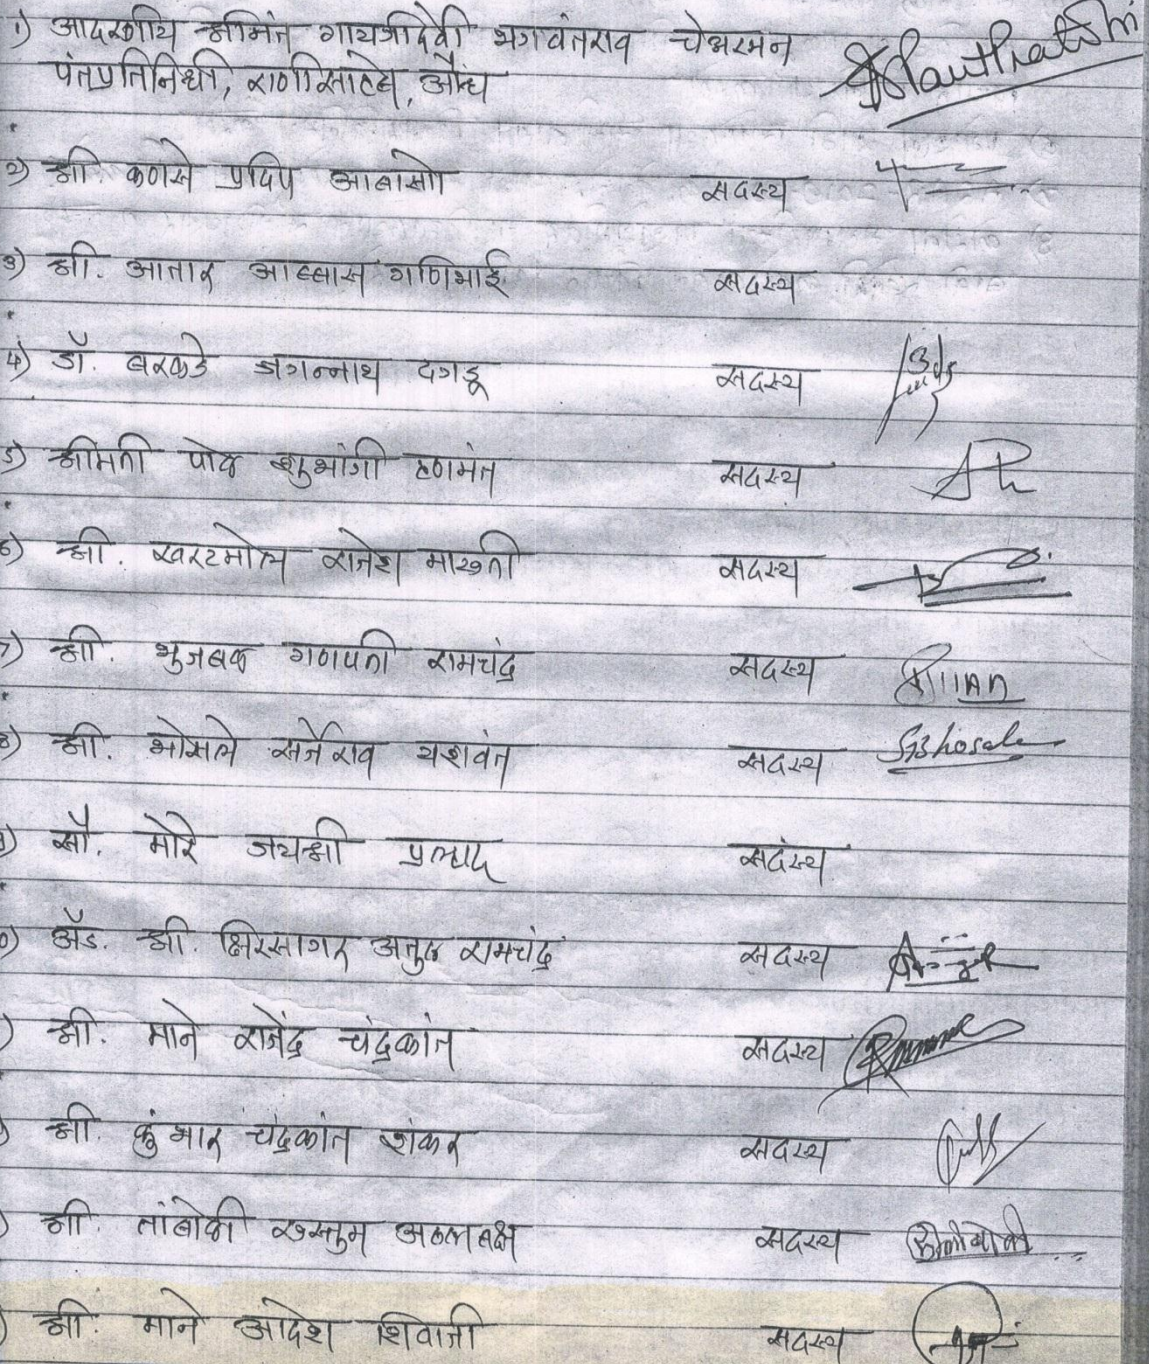 १) आदरणीय श्रीमंत गायत्रीदेवी भगवंतराव चेअरमन
पंतप्रतिनिधी, राणीसाहेब, औंध
२) श्री. कणसे प्रदिप आबासो सदस्य
३) श्री. आतार आब्बास गणिभाई सदस्य
४) डॉ. बरकडे जगन्नाथ दगडू सदस्य
५) श्रीमती पोळ शुभांगी हणमंत सदस्य
६) श्री. खरटमोल राजेश मारुती सदस्य
७) श्री. भुजबळ गणपती रामचंद्र सदस्य
८) श्री. भोसले सर्जेराव यशवंत सदस्य Bhosale
९) सौ. मोरे जयश्री प्रल्हाद सदस्य
०) अॅड. श्री. क्षिरसागर अतुल रामचंद्र सदस्य
) श्री. माने राजेंद्र चंद्रकांत सदस्य
) श्री. कुंभार चंद्रकांत शंकर सदस्य
) श्री. तांबोळी रुस्तुम अल्लाबक्ष सदस्य
) श्री. माने आदेश शिवाजी सदस्य